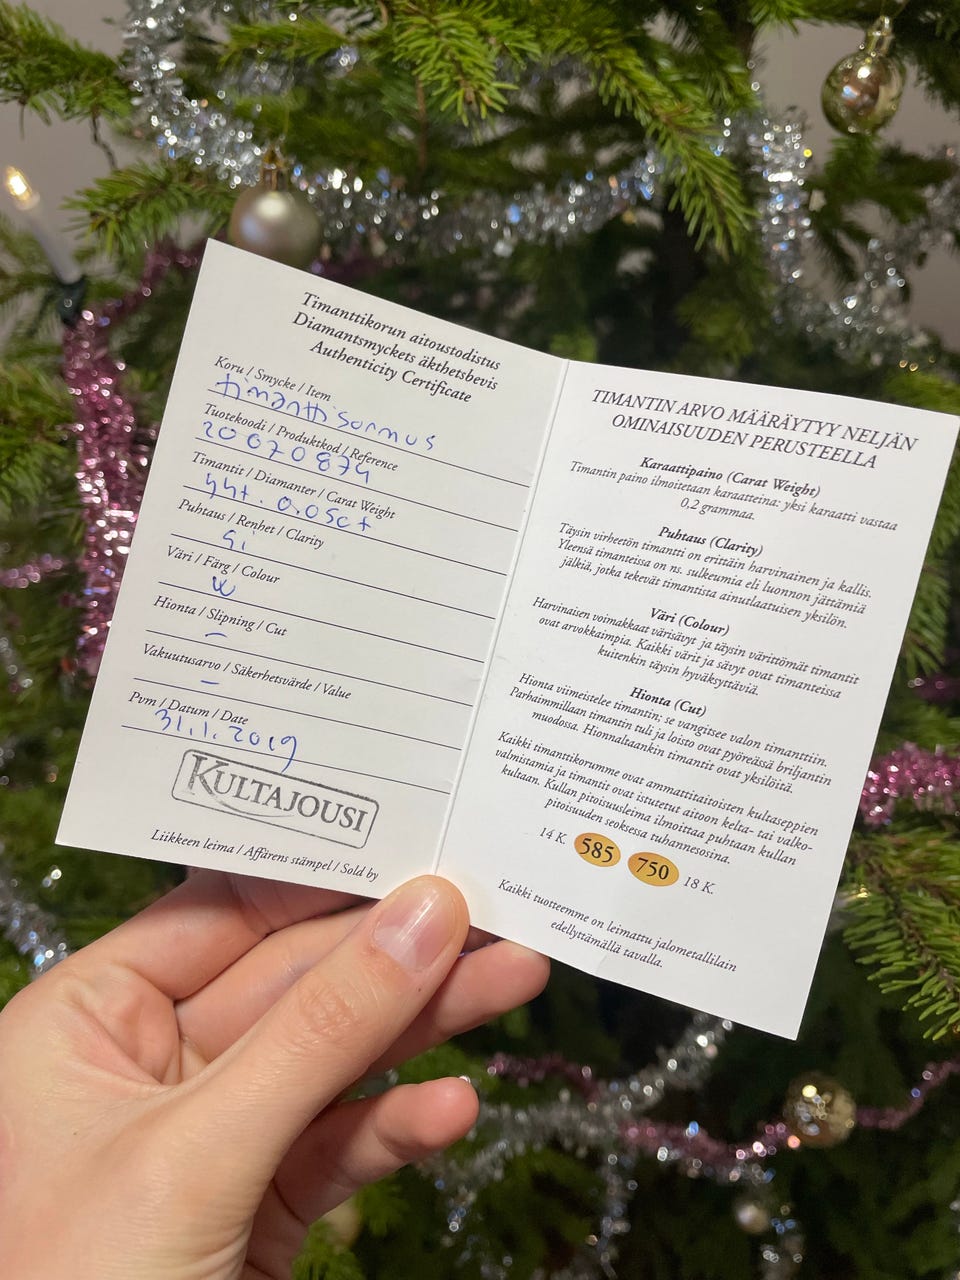 Timanttikorun aitoustodistus
Diamantsmyckets äkthetsbevis
Authenticity Certificate
Koru / Smycke / Item
timanttisormus
Tuotekoodi / Produktkod / Reference
20070874
Timantit / Diamanter / Carat Weight
yht. 0.05ct
Puhtaus / Renhet / Clarity
Si
Väri / Färg / Colour
W
Hionta / Slipning / Cut
–
Vakuutusarvo / Säkerhetsvärde / Value
–
Pvm / Datum / Date
31.1.2019
KULTAJOUSI
Liikkeen leima / Affärens stämpel / Sold by
TIMANTIN ARVO MÄÄRÄYTYY NELJÄN
OMINAISUUDEN PERUSTEELLA
Karaattipaino (Carat Weight)
Timantin paino ilmoitetaan karaatteina: yksi karaatti vastaa
0,2 grammaa.
Puhtaus (Clarity)
Täysin virheetön timantti on erittäin harvinainen ja kallis.
Yleensä timanteissa on ns. sulkeumia eli luonnon jättämiä
jälkiä, jotka tekevät timantista ainutlaatuisen yksilön.
Väri (Colour)
Harvinaisen voimakkaat värisävyt ja täysin värittömät timantit
ovat arvokkaimpia. Kaikki värit ja sävyt ovat timanteissa
kuitenkin täysin hyväksyttäviä.
Hionta (Cut)
Hionta viimeistelee timantin; se vangitsee valon timanttiin.
Parhaimmillaan timantin tuli ja loisto ovat pyöreässä briljantin
muodossa. Hionnaltaankin timantit ovat yksilöitä.
Kaikki timanttikorumme ovat ammattitaitoisten kultaseppien
valmistamia ja timantit ovat istutetut aitoon kelta- tai valko-
kultaan. Kullan pitoisuusleima ilmoittaa puhtaan kullan
pitoisuuden seoksessa tuhannesosina.
14 K. 585 750 18 K.
Kaikki tuotteemme on leimattu jalometallilain
edellyttämällä tavalla.